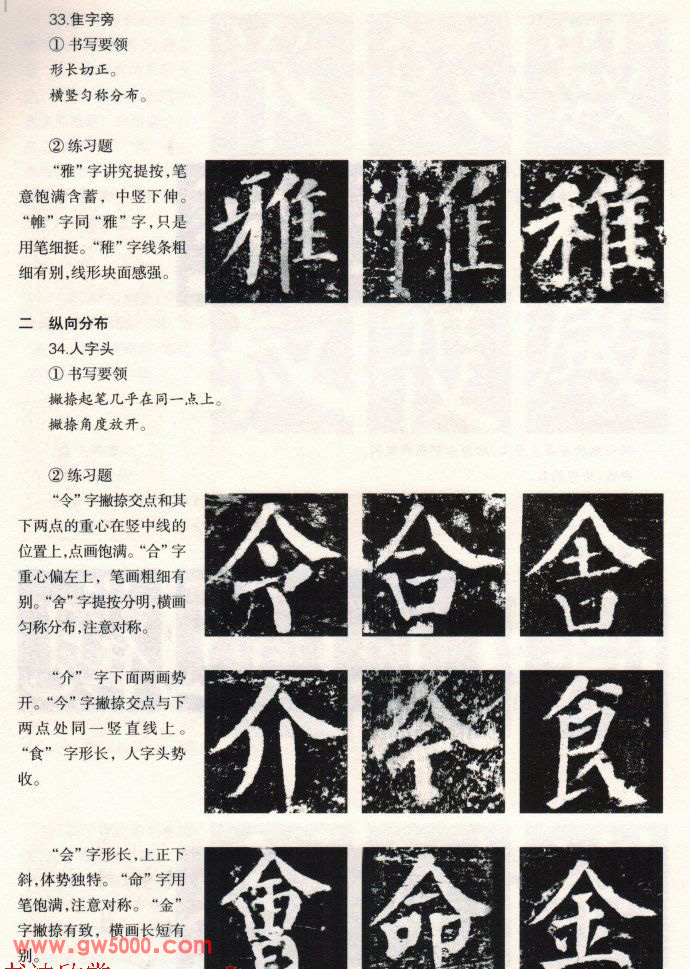 33.隹字旁
① 书写要领
形长切正。
横竖匀称分布。
② 练习题
“雅”字讲究提按,笔
意饱满含蓄，中竖下伸。
“帷”字同“雅”字,只是
用笔细挺。“稚”字线条粗
细有别,线形块面感强。
雅 帷 稚
二 纵向分布
34.人字头
① 书写要领
撇捺起笔几乎在同一点上。
撇捺角度放开。
② 练习题
“令”字撇捺交点和其
下两点的重心在竖中线的
位置上,点画饱满。“合”字
重心偏左上，笔画粗细有
别。“舍”字提按分明,横画
匀称分布,注意对称。
令 合 舍
“介”字下面两画势
开。“今”字撇捺交点与下
两点处同一竖直线上。
“食”字形长，人字头势
收。
介 今 食
“会”字形长,上正下
斜,体势独特。“命”字用
笔饱满,注意对称。“金”
字撇捺有致，横画长短有
别。
會 命 金
www.gw5000.com